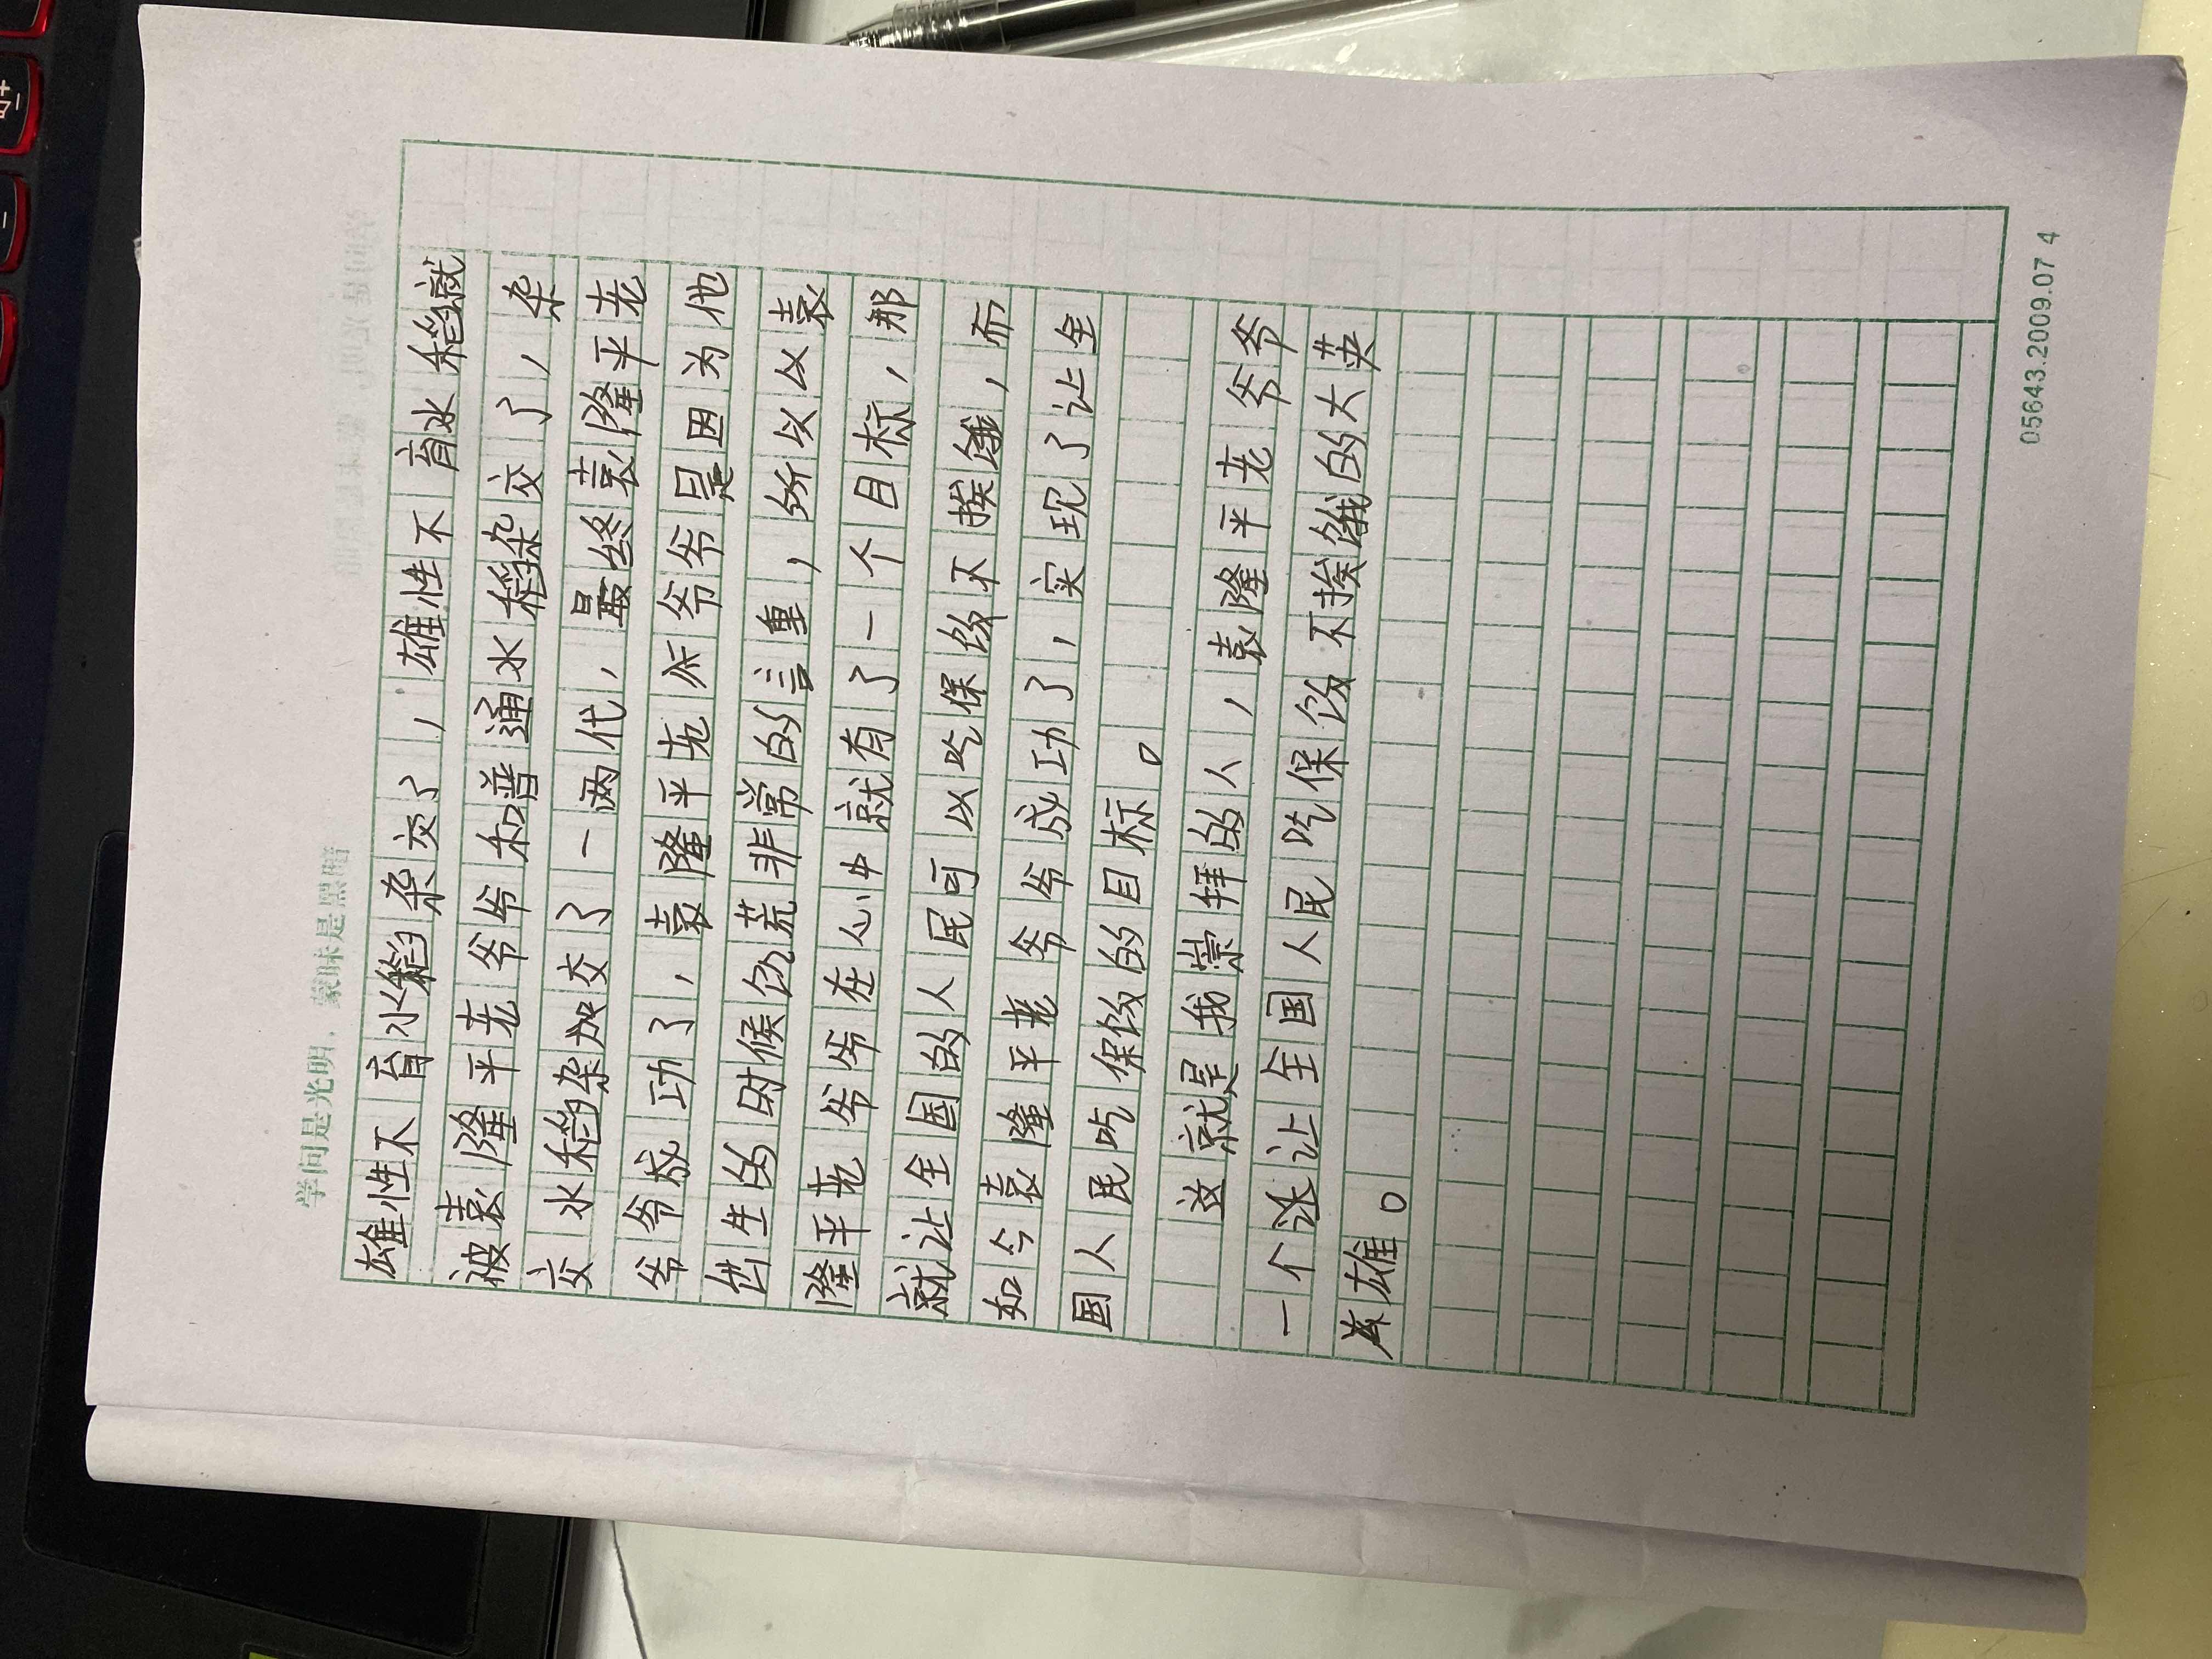 学问是光明，蒙昧是黑暗
雄性不育水稻杂交了，雄性不育水稻就
被袁隆平老爷爷和普通水稻杂交了，杂
交水稻杂加交了一两代，最终袁隆平老
爷爷成功了，袁隆平老爷爷是因为他
出生的时候饥荒非常的言重，所以以袁
隆平老爷爷在心中就有了一个目标，那
就让全国的人民可以吃保饭不挨饿，而
如今袁隆平老爷爷成功了，实现了让全
国人民吃保饭的目标。
这就是我崇拜的人，袁隆平老爷爷
一个让全国人民吃保饭不挨饿的大英
雄。
05643.2009.07 4